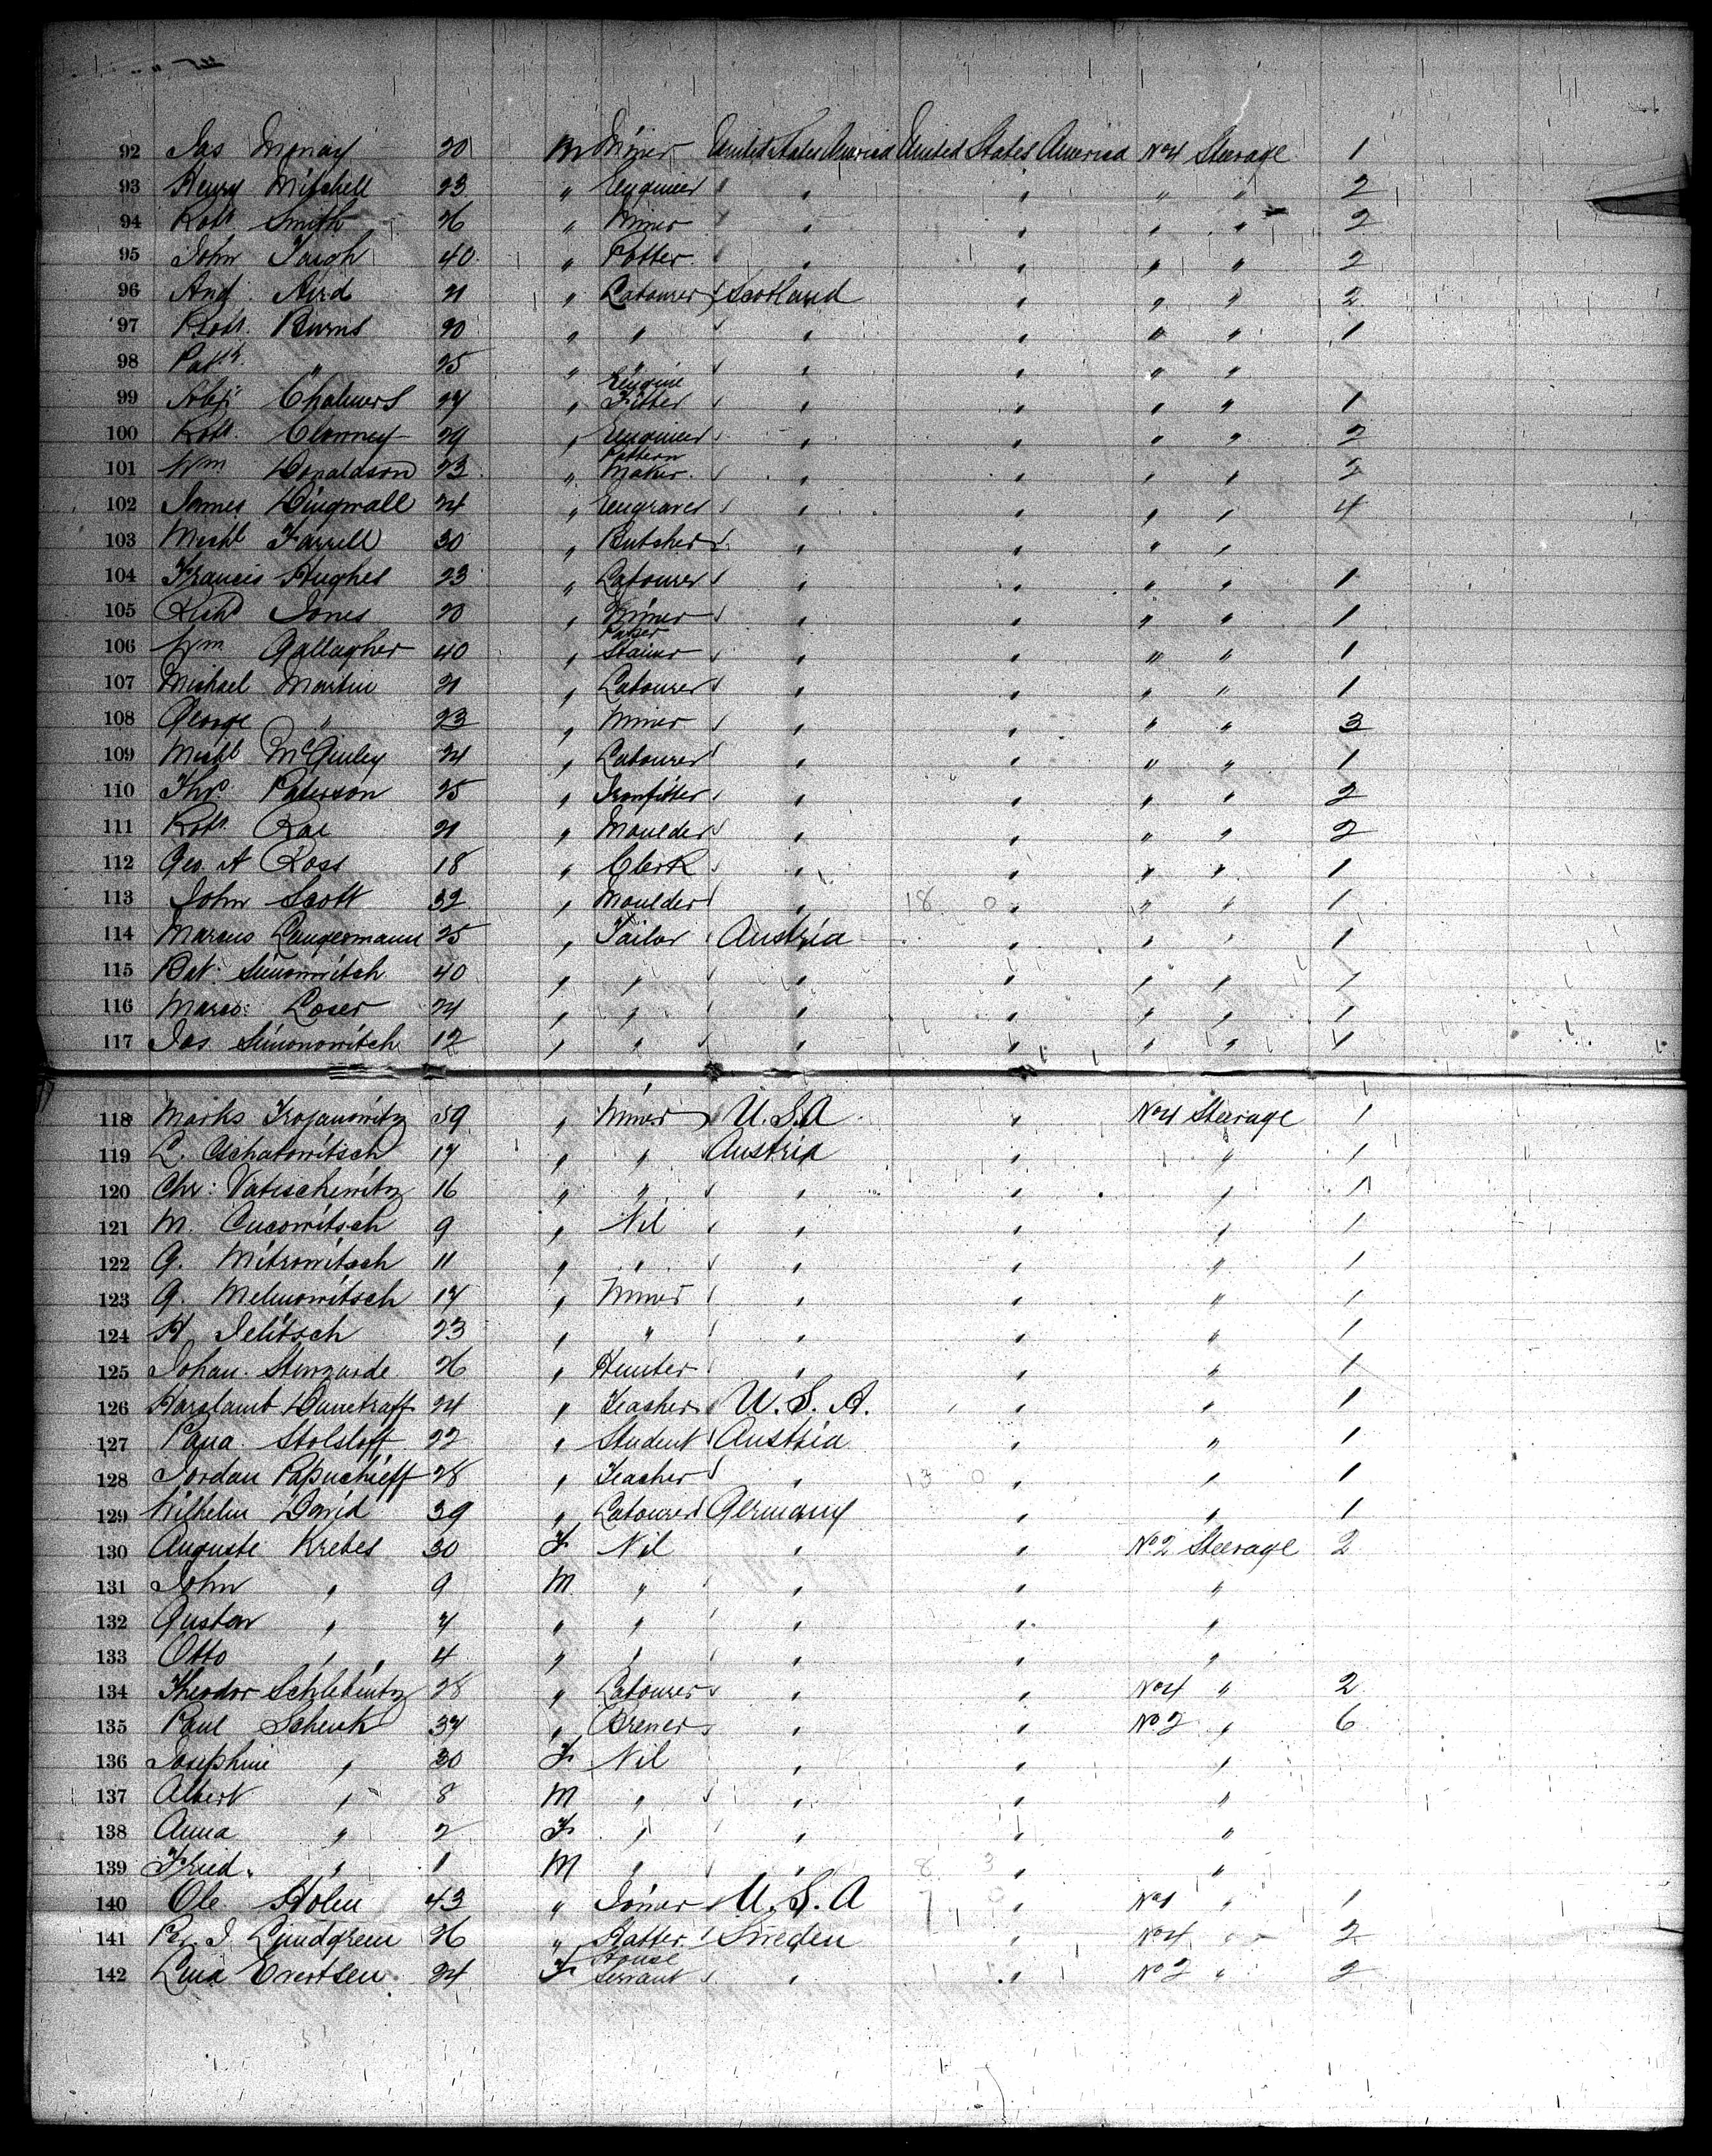 92 Jas 20 M Miner United States America United States America No 4 Steerage 1
93 Henry Mitchell 23 " Engineer " " " " " 2
94 Robt Smith 26 " Miner " " " " " 2
95 John 40 " Potter " " " " " 2
96 And. Aird 21 " Labourer Scotland " " " 2
97 Robt. Burns 20 " " " " " " 1
98 Patk. " 25 " " " " " "
99 Chalmers 27 " Engine Fitter " " " " 1
100 Robt. 29 " Engineer " " " " 2
101 Wm Donaldson 23 " Pattern Maker " " " " 2
102 James Dingwall 24 " Engraver " " " " 4
103 Michl Farrell 30 " Butcher " " " "
104 Francis Hughes 23 " Labourer " " " " 1
105 Richd Jones 20 " Miner " " " " 1
106 Wm Gallagher 40 " Paper Stainer " " " " 1
107 Michael Martin 21 " Labourer " " " " 1
108 George " 23 " Miner " " " " 3
109 Michl McGinley 24 " Labourer " " " " 1
110 Thos Paterson 25 " Ironfitter " " " " 2
111 Robt. Rae 21 " Moulder " " " " 2
112 Geo. A Ross 18 " Clerk " " " " 1
113 John Scott 32 " Moulder " 18 0 " " " 1
114 Marcus Langermann 25 " Tailor Austria " " " 1
115 Simonowitch 40 " " " " " " 1
116 Loser 24 " " " " " " 1
117 Jas Simonowitch 12 " " " " " " 1
118 Marks Trojanowitz 59 " Miner U.S.A " No 4 Steerage 1
119 L. 17 " " Austria " " 1
120 Chr: 16 " " " " " 1
121 M. 9 " Nil " " " 1
122 G. Mitrowitsch 11 " " " " " 1
123 G. 17 " Miner " " " 1
124 Jelitsch 23 " " " " " 1
125 Johan. 26 " " " " 1
126 24 " Teacher U. S. A. " " 1
127 22 " Student Austria " " 1
128 Jordan Papuchieff 28 " Teacher " 13 0 " " 1
129 Wilhelm David 39 " Labourer Germany " " 1
130 Auguste Krebes 30 F Nil " " No 2 Steerage 2
131 John " 9 M " " " "
132 Gustav " 7 " " " " "
133 Otto " 4 " " " " "
134 Theodor 28 " Labourer " " No 4 " 2
135 Paul Schenk 37 " " " No 2 " 6
136 Josephine " 30 F Nil " " "
137 Albert " 8 M " " " "
138 Anna " 2 F " " " "
139 " 1 M " " 8 3 " "
140 Ole Holen 43 " Joiner U. S. A 7 0 " No 1 " 1
141 Lundgren 26 " Hatter Sweden " No 4 " 2
142 Lina Evertsen 24 F House Servant " " No 2 " 2